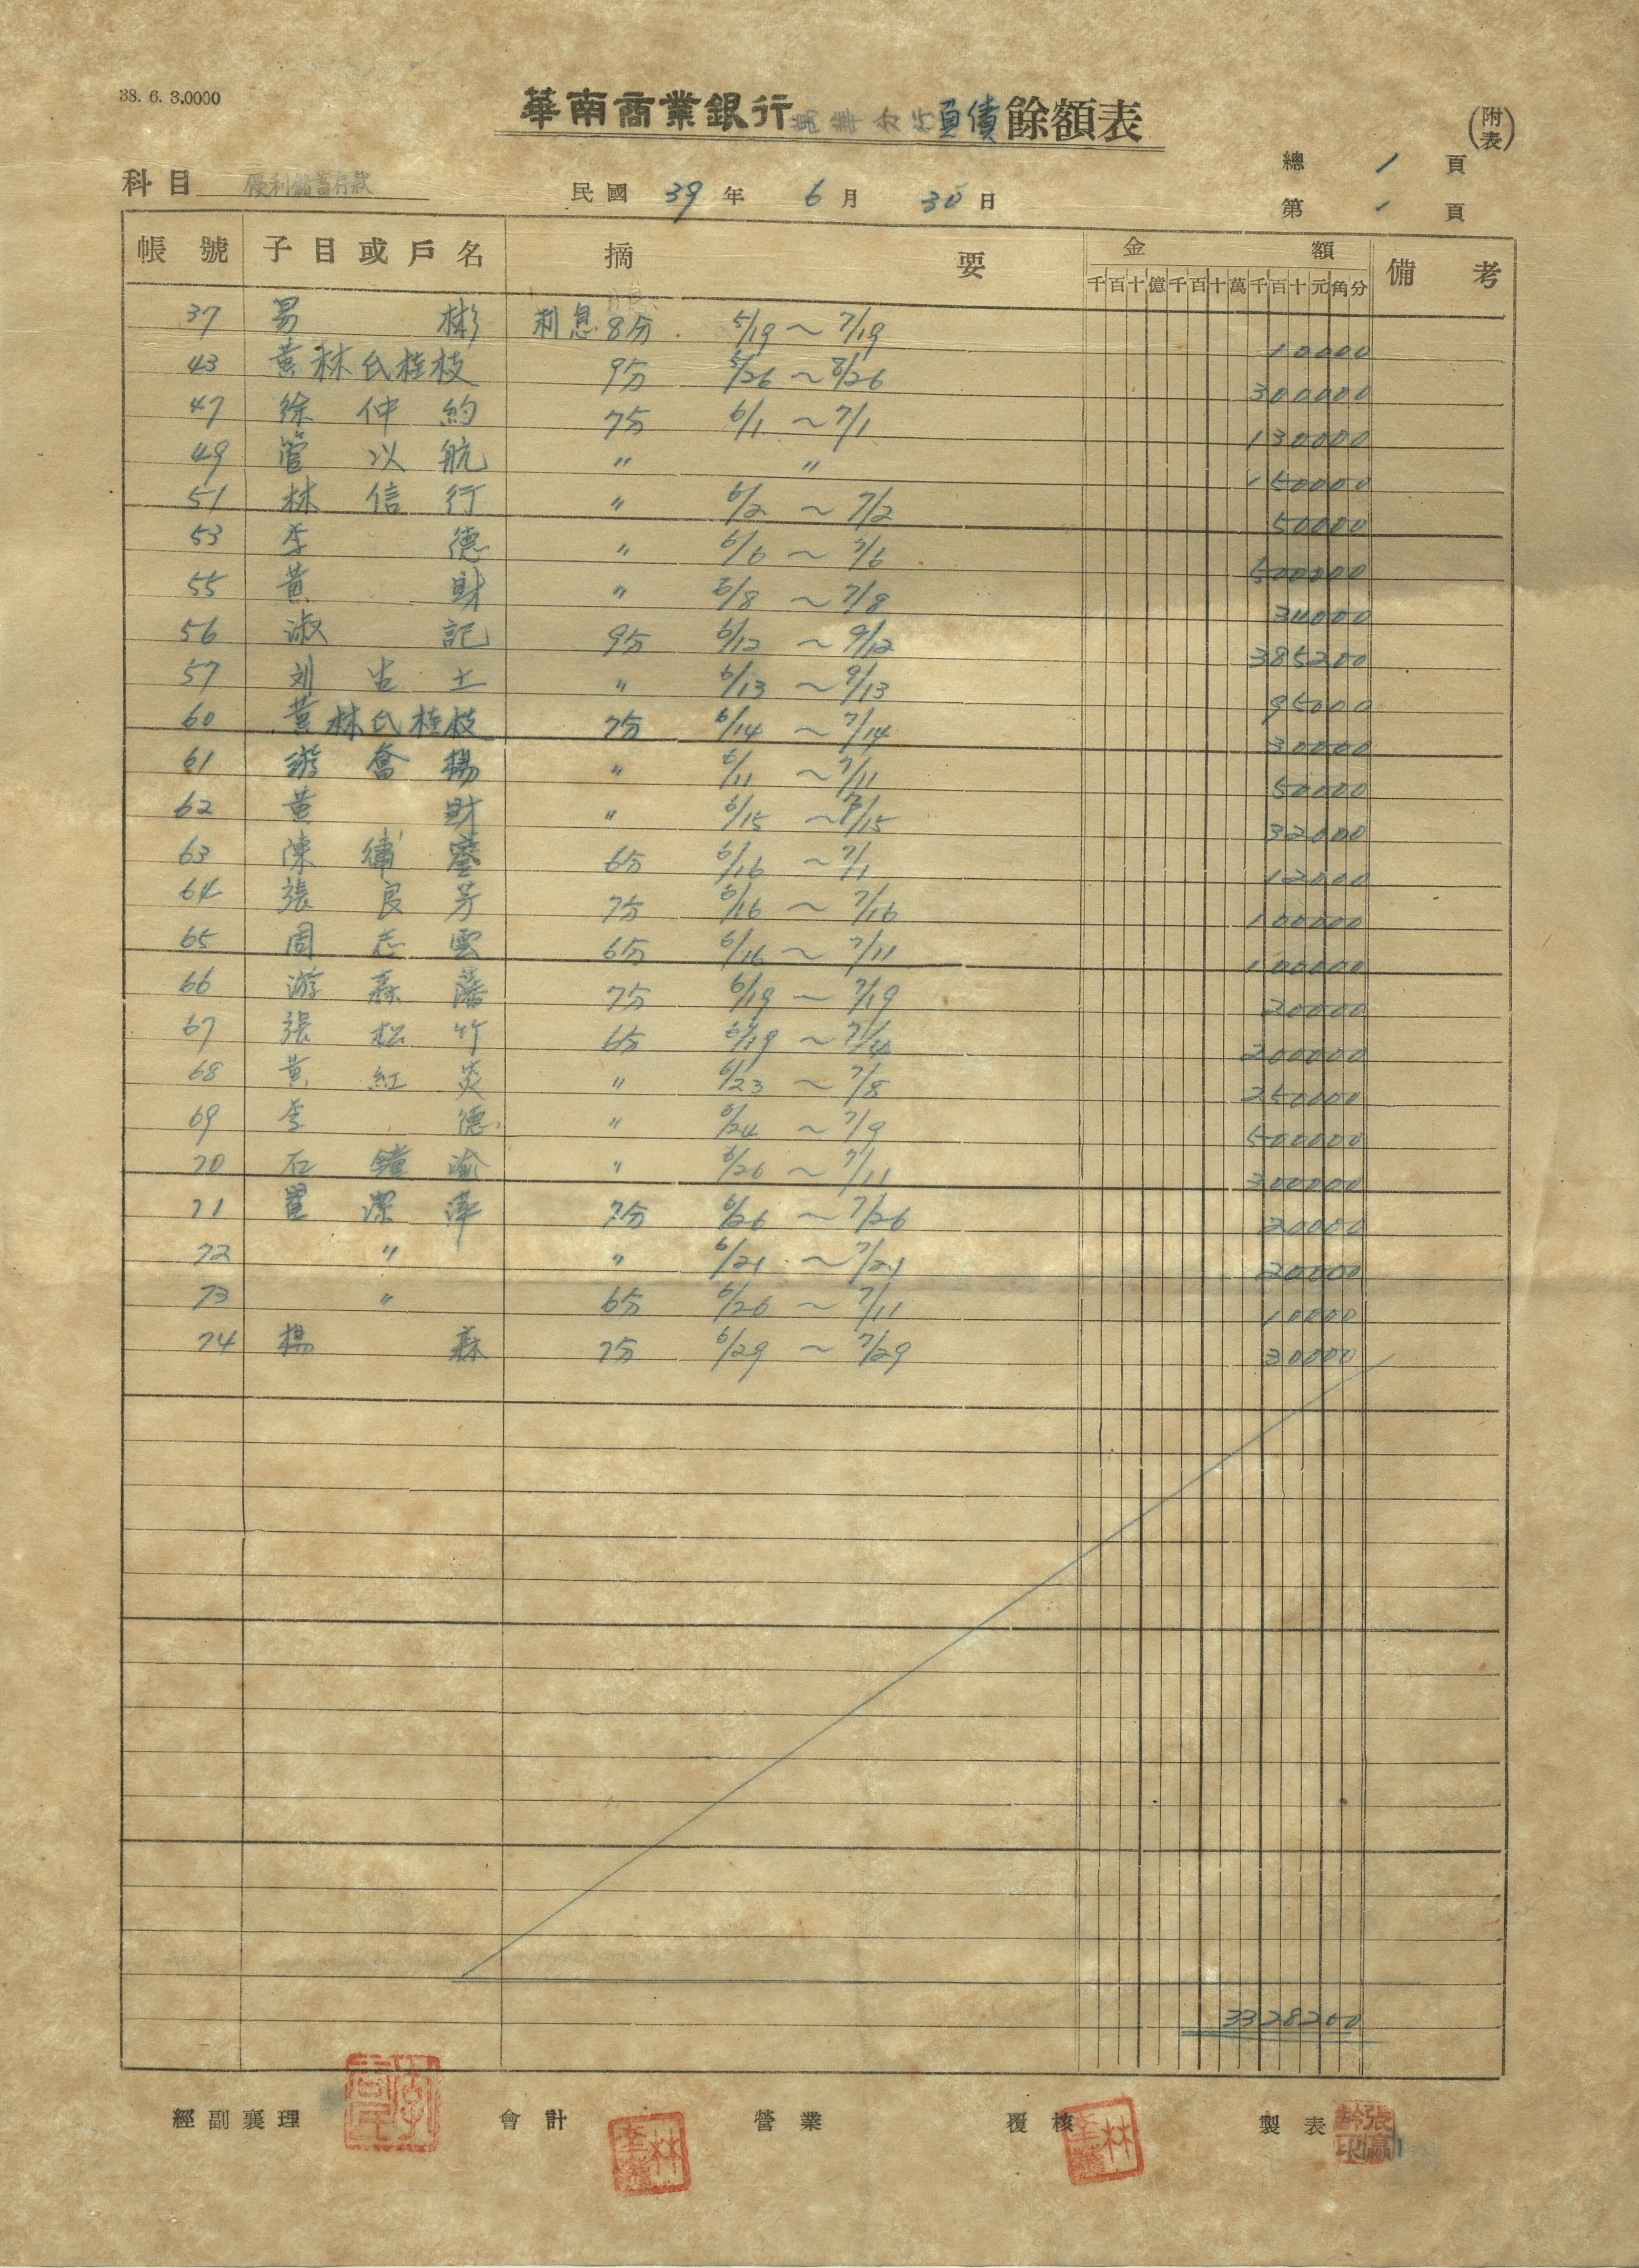 38. 6. 3.0000
華南商業銀行萬華分行負債餘額表
(附表)
科目 優利儲蓄存款 民國 39 年 6 月 30 日
總 1 頁
第 1 頁
帳號 子目或戶名 摘要 金額 備考
千百十億千百十萬千百十元角分
37 易彬 利息 8分 5/19 ~ 7/19 10000
43 黃林氏桂枝 9分 5/26 ~ 8/26 300000
47 徐仲約 7分 6/1 ~ 7/1 130000
49 管以航 〃 〃 150000
51 林信行 〃 6/2 ~ 7/2 50000
53 李德 〃 6/6 ~ 7/6 500000
55 黃財 〃 6/8 ~ 7/8 34000
56 淑記 9分 6/12 ~ 9/12 385200
57 刘生土 〃 6/13 ~ 9/13 95000
60 黃林氏桂枝 7分 6/14 ~ 7/14 30000
61 游奮揚 〃 6/11 ~ 7/11 50000
62 黃財 〃 6/15 ~ 7/15 32000
63 陳繡 6分 6/16 ~ 7/1 12000
64 張良芳 7分 6/16 ~ 7/16 100000
65 周志雲 6分 6/16 ~ 7/11 100000
66 游森藩 7分 6/19 ~ 7/19 20000
67 張松竹 6分 6/19 ~ 7/4 200000
68 黃紅炎 〃 6/23 ~ 7/8 250000
69 李德 〃 6/24 ~ 7/9 500000
70 石鐘渝 〃 6/26 ~ 7/11 300000
71 翟潔萍 7分 6/26 ~ 7/26 20000
72 〃 〃 6/21 ~ 7/21 20000
73 〃 6分 6/26 ~ 7/11 10000
74 楊森 7分 6/29 ~ 7/29 30000
3328200
經副襄理 會計 營業 覆核 製表